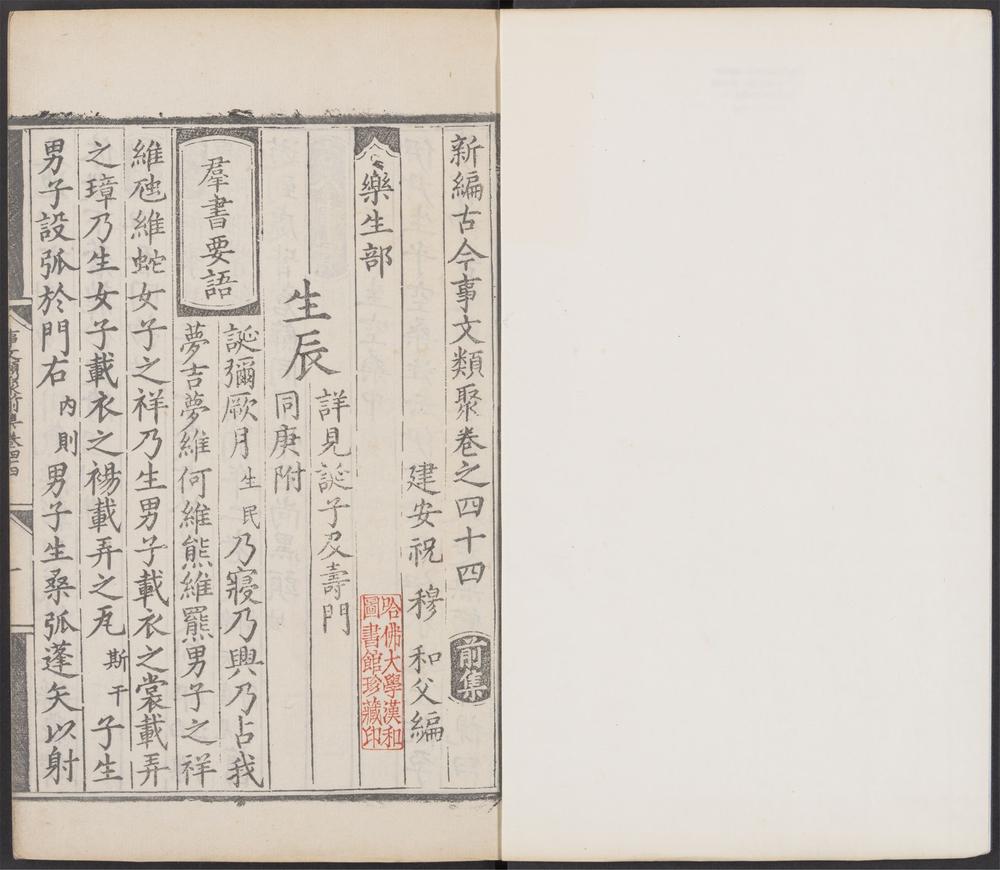 新編古今事文類聚卷之四十四 前集
建安祝 穆 和父編
樂生部
詳見誕子及壽門
生辰
同庚附
羣書要語 誕彌厥月 生民 乃寢乃興乃占我
夢吉夢維何維熊維羆男子之祥
維虺維蛇女子之祥乃生男子載衣之裳載弄
之璋乃生女子載衣之裼載弄之瓦 斯干 子生
男子設弧於門右 內則 男子生桑弧蓬矢以射
哈佛大學漢和
圖書館珍藏印